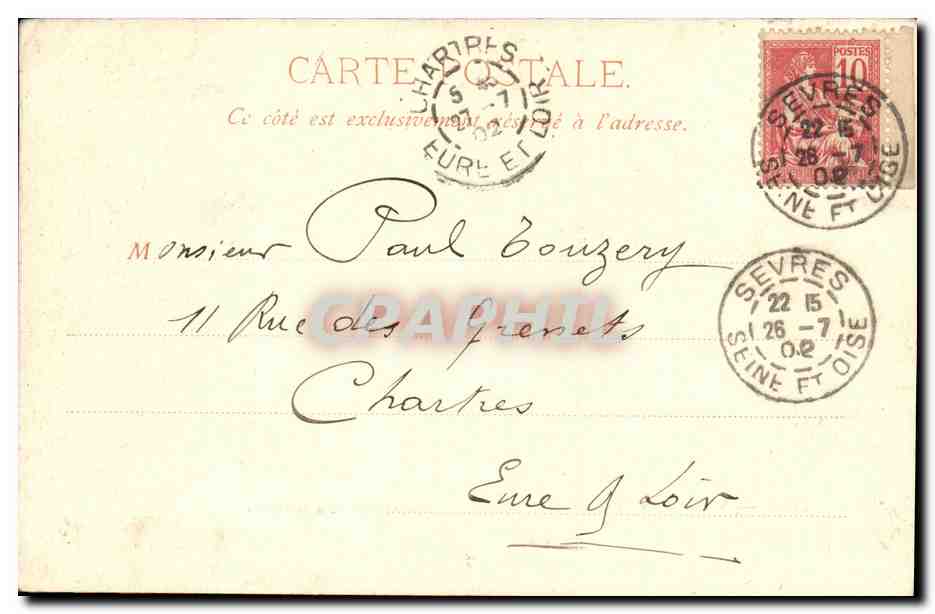 CARTE POSTALE.
Ce côté est exclusivement réservé à l'adresse.
CHARTRES
5
27 -7
02
EURE ET LOIR
POSTES
10
SEVRES
22 15
26 -7
02
SEINE ET OISE
Monsieur Paul Touzery
11 Rue des Grenets
Chartres
Eure & Loir
SEVRES
22 15
26 -7
02
SEINE ET OISE
CPAPHIL